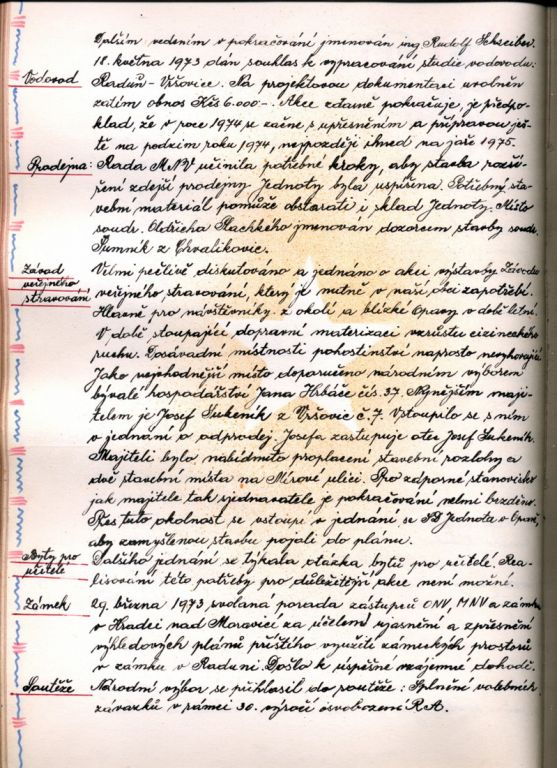 Dalším vedením v pokračování jmenován ing. Rudolf Schreiber.
18. května 1973 dán souhlas k vypracování, studie vodovodu:
Vodovod Raduň - Vršovice. Na projektovou dokumentaci uvolněn
zatím obnos Kčs 6.000-. Akce zdárně pokračuje, je předpo-
klad, že v roce 1974 se začne s upřesněním a přípravou ješ-
tě na podzim roku 1974, nejpozději ihned na jaře 1975.
Prodejna: Rada MNV učinila potřebné kroky, aby stavba rozší-
ření zdejší prodejny Jednoty byla uspíšena. Potřebný sta-
vební materiál pomůže obstarati i sklad Jednoty. Místo
soudr. Oldřicha Plachkého jmenován dozorcem stavby soudr.
Šumník z Chvalíkovic.
Závod Velmi pečlivě diskutováno a jednáno o akci výstavby Závodu
veřejného veřejného, stravování, který je nutně v naší obci zapotřebí.
stravování Hlavně pro návštěvníky z okolí a blízké Opavy v době letní.
V době stoupající dopravní materizaci vzrůstu cizineckého
ruchu. Dosavadní místnosti pohostinství naprosto nevyhovující.
Jako nejvhodnější místo doporučeno národním výborem
bývalé hospodářství Jana Hrbáče čís. 37. Nynějším maji-
telem je Josef Lukeník z Vršovic č. 7. Vstoupilo se s ním
v jednání o odprodej. Josefa zastupuje otec Josef Lukeník.
Majiteli bylo nabídnuto proplacení stavební rozlohy a
dvě stavební místa na Mírové ulici. Pro záporné stanovisko
jak majitele tak sjednavatele je pokračování velmi bezděčno.
Přes tuto okolnost se vstoupí v jednání se SD Jednota v Opavě,
aby zamyšlenou stavbu pojali do plánu.
Byty pro Dalšího jednání se týkala otázka bytů pro učitelé. Rea-
učitelé lisování této potřeby pro důležitější akce není možné.
Zámek 29. března 1973 svolaná porada zástupců ONV, MNV a zámku
v Hradci nad Moravicí za účelem ujasnění a zpřesnění
výhledových plánů příštího využití zámeckých prostorů
v zámku v Raduni. Došlo k úspěšné vzájemné dohodě.
Soutěže Národní výbor se přihlásil do soutěže: Splnění volebních
závazků v rámci 30. výročí osvobození R.A.